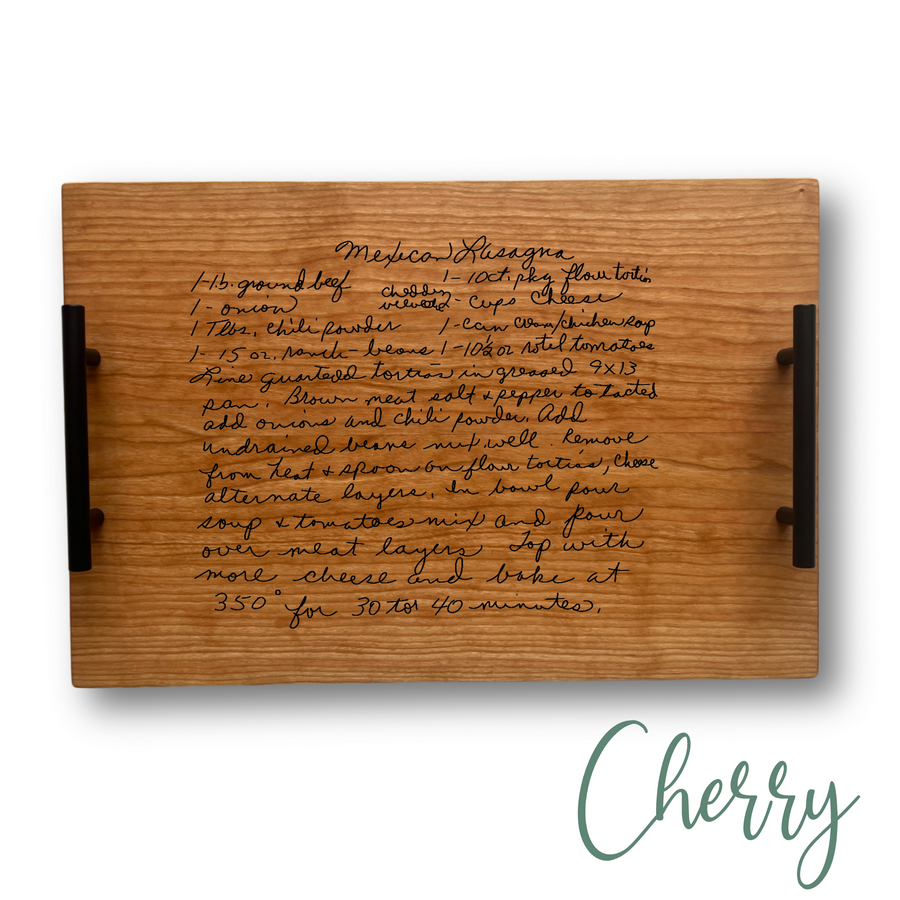 Mexican Lasagna
1-lb. ground beef 1-10ct. pkg flour tortias
1- onion cheddar velveeta 2- Cups Cheese
1 Tlbs. chili powder 1-can cream/chicken soup
1- 15 oz. ranch-beans 1-10½ oz rotel tomatoes
Line quartedd tortias in greased 9x13
pan. Brown meat salt & pepper to tasted
add onions and chili powder. Add
undrained beans mix well. Remove
from heat & spoon on flour tortias, cheese
alternate layers. In bowl pour
soup & tomatoes mix and pour
over meat layers Top with
more cheese and bake at
350° for 30 to 40 minutes.
Cherry